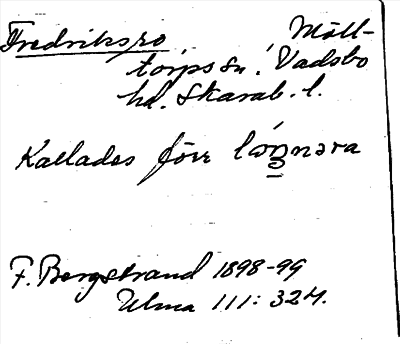 Fredriksro Mölltorps sn. Vadsbo
hd. Skarab. l.
Kallades förr
F. Bergstrand 1898-99
Ulma 111: 324.